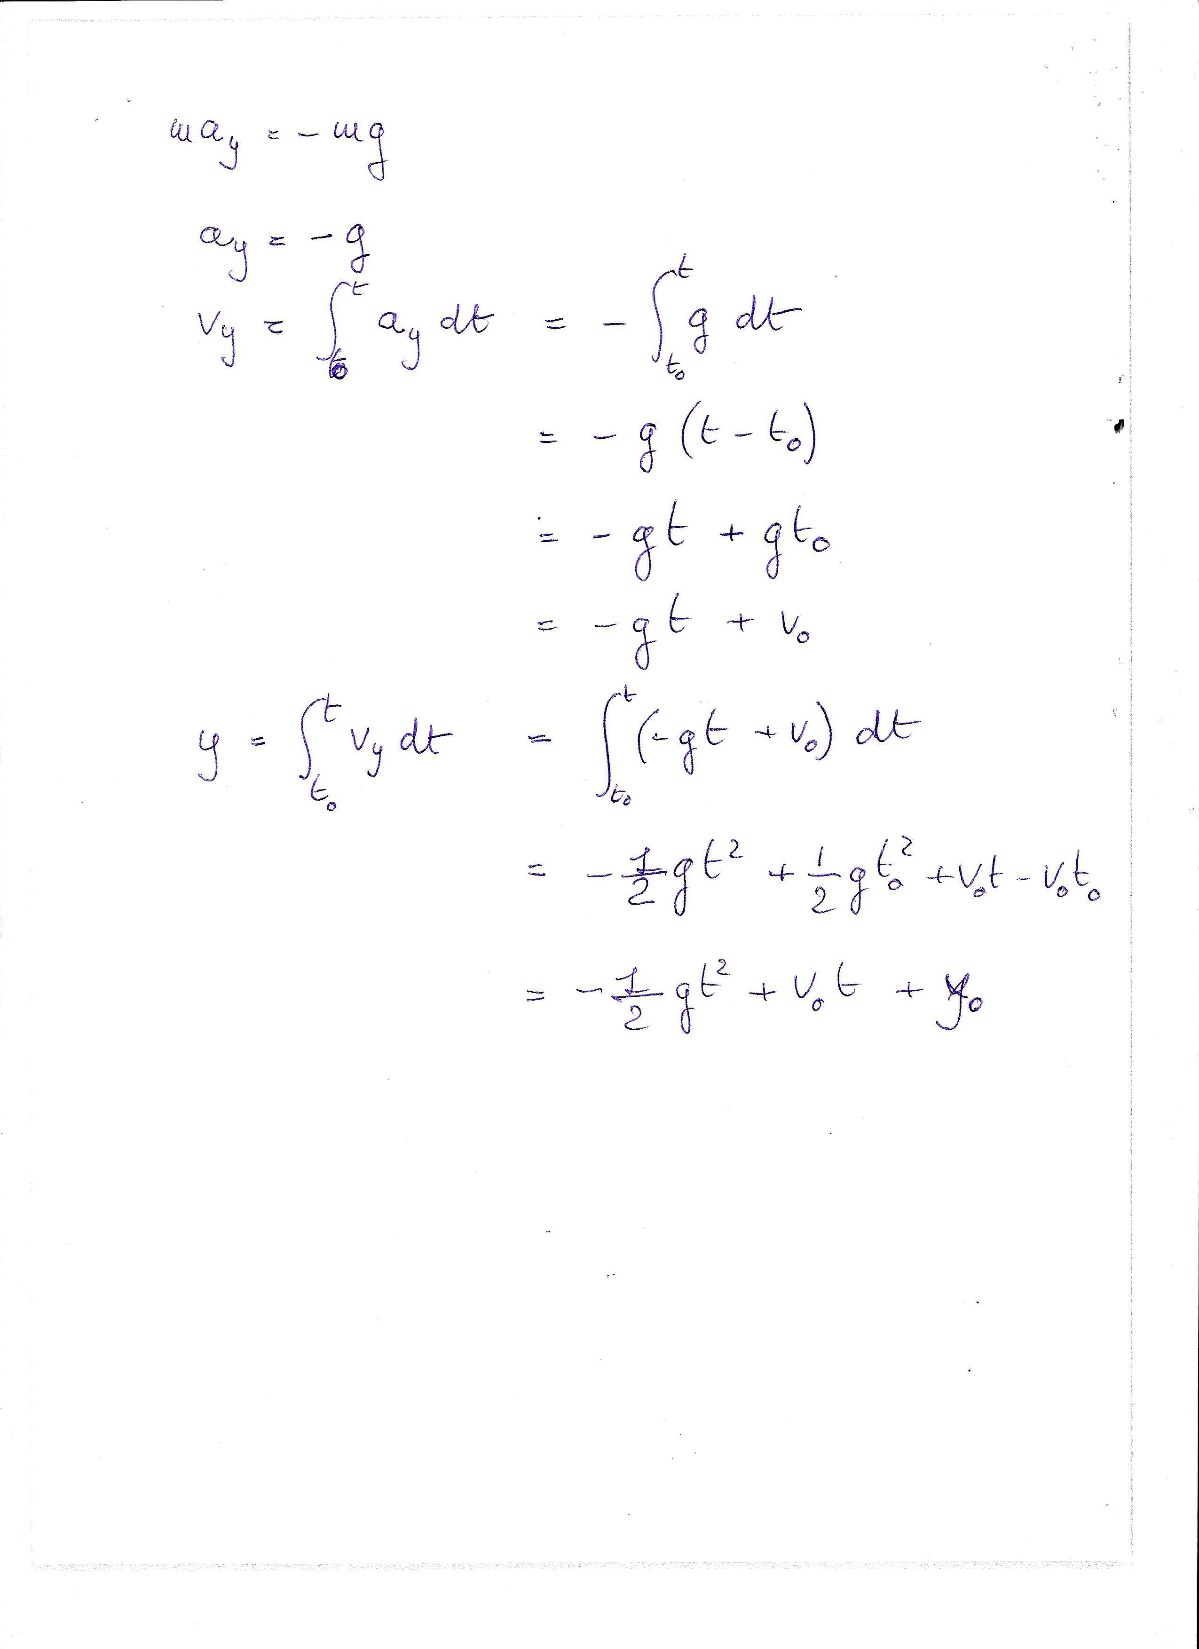 ma_y = - mg
a_y = - g
v_y = ∫_{t_0}^{t} a_y dt = - ∫_{t_0}^{t} g dt
= - g (t - t_0)
= - gt + gt_0
= - gt + v_0
y = ∫_{t_0}^{t} v_y dt = ∫_{t_0}^{t} (-gt + v_0) dt
= - 1/2 gt² + 1/2 gt_0² + v_0t - v_0t_0
= - 1/2 gt² + v_0t + y_0